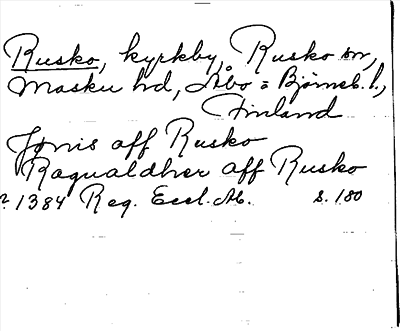 Rusko, kyrkby, Rusko sn,
Masku hd, Åbo = Björneb. l.,
Finland
Jönis aff Rusko
Ragualdher aff Rusko
1384 Reg. Eccl. Ab. s. 180